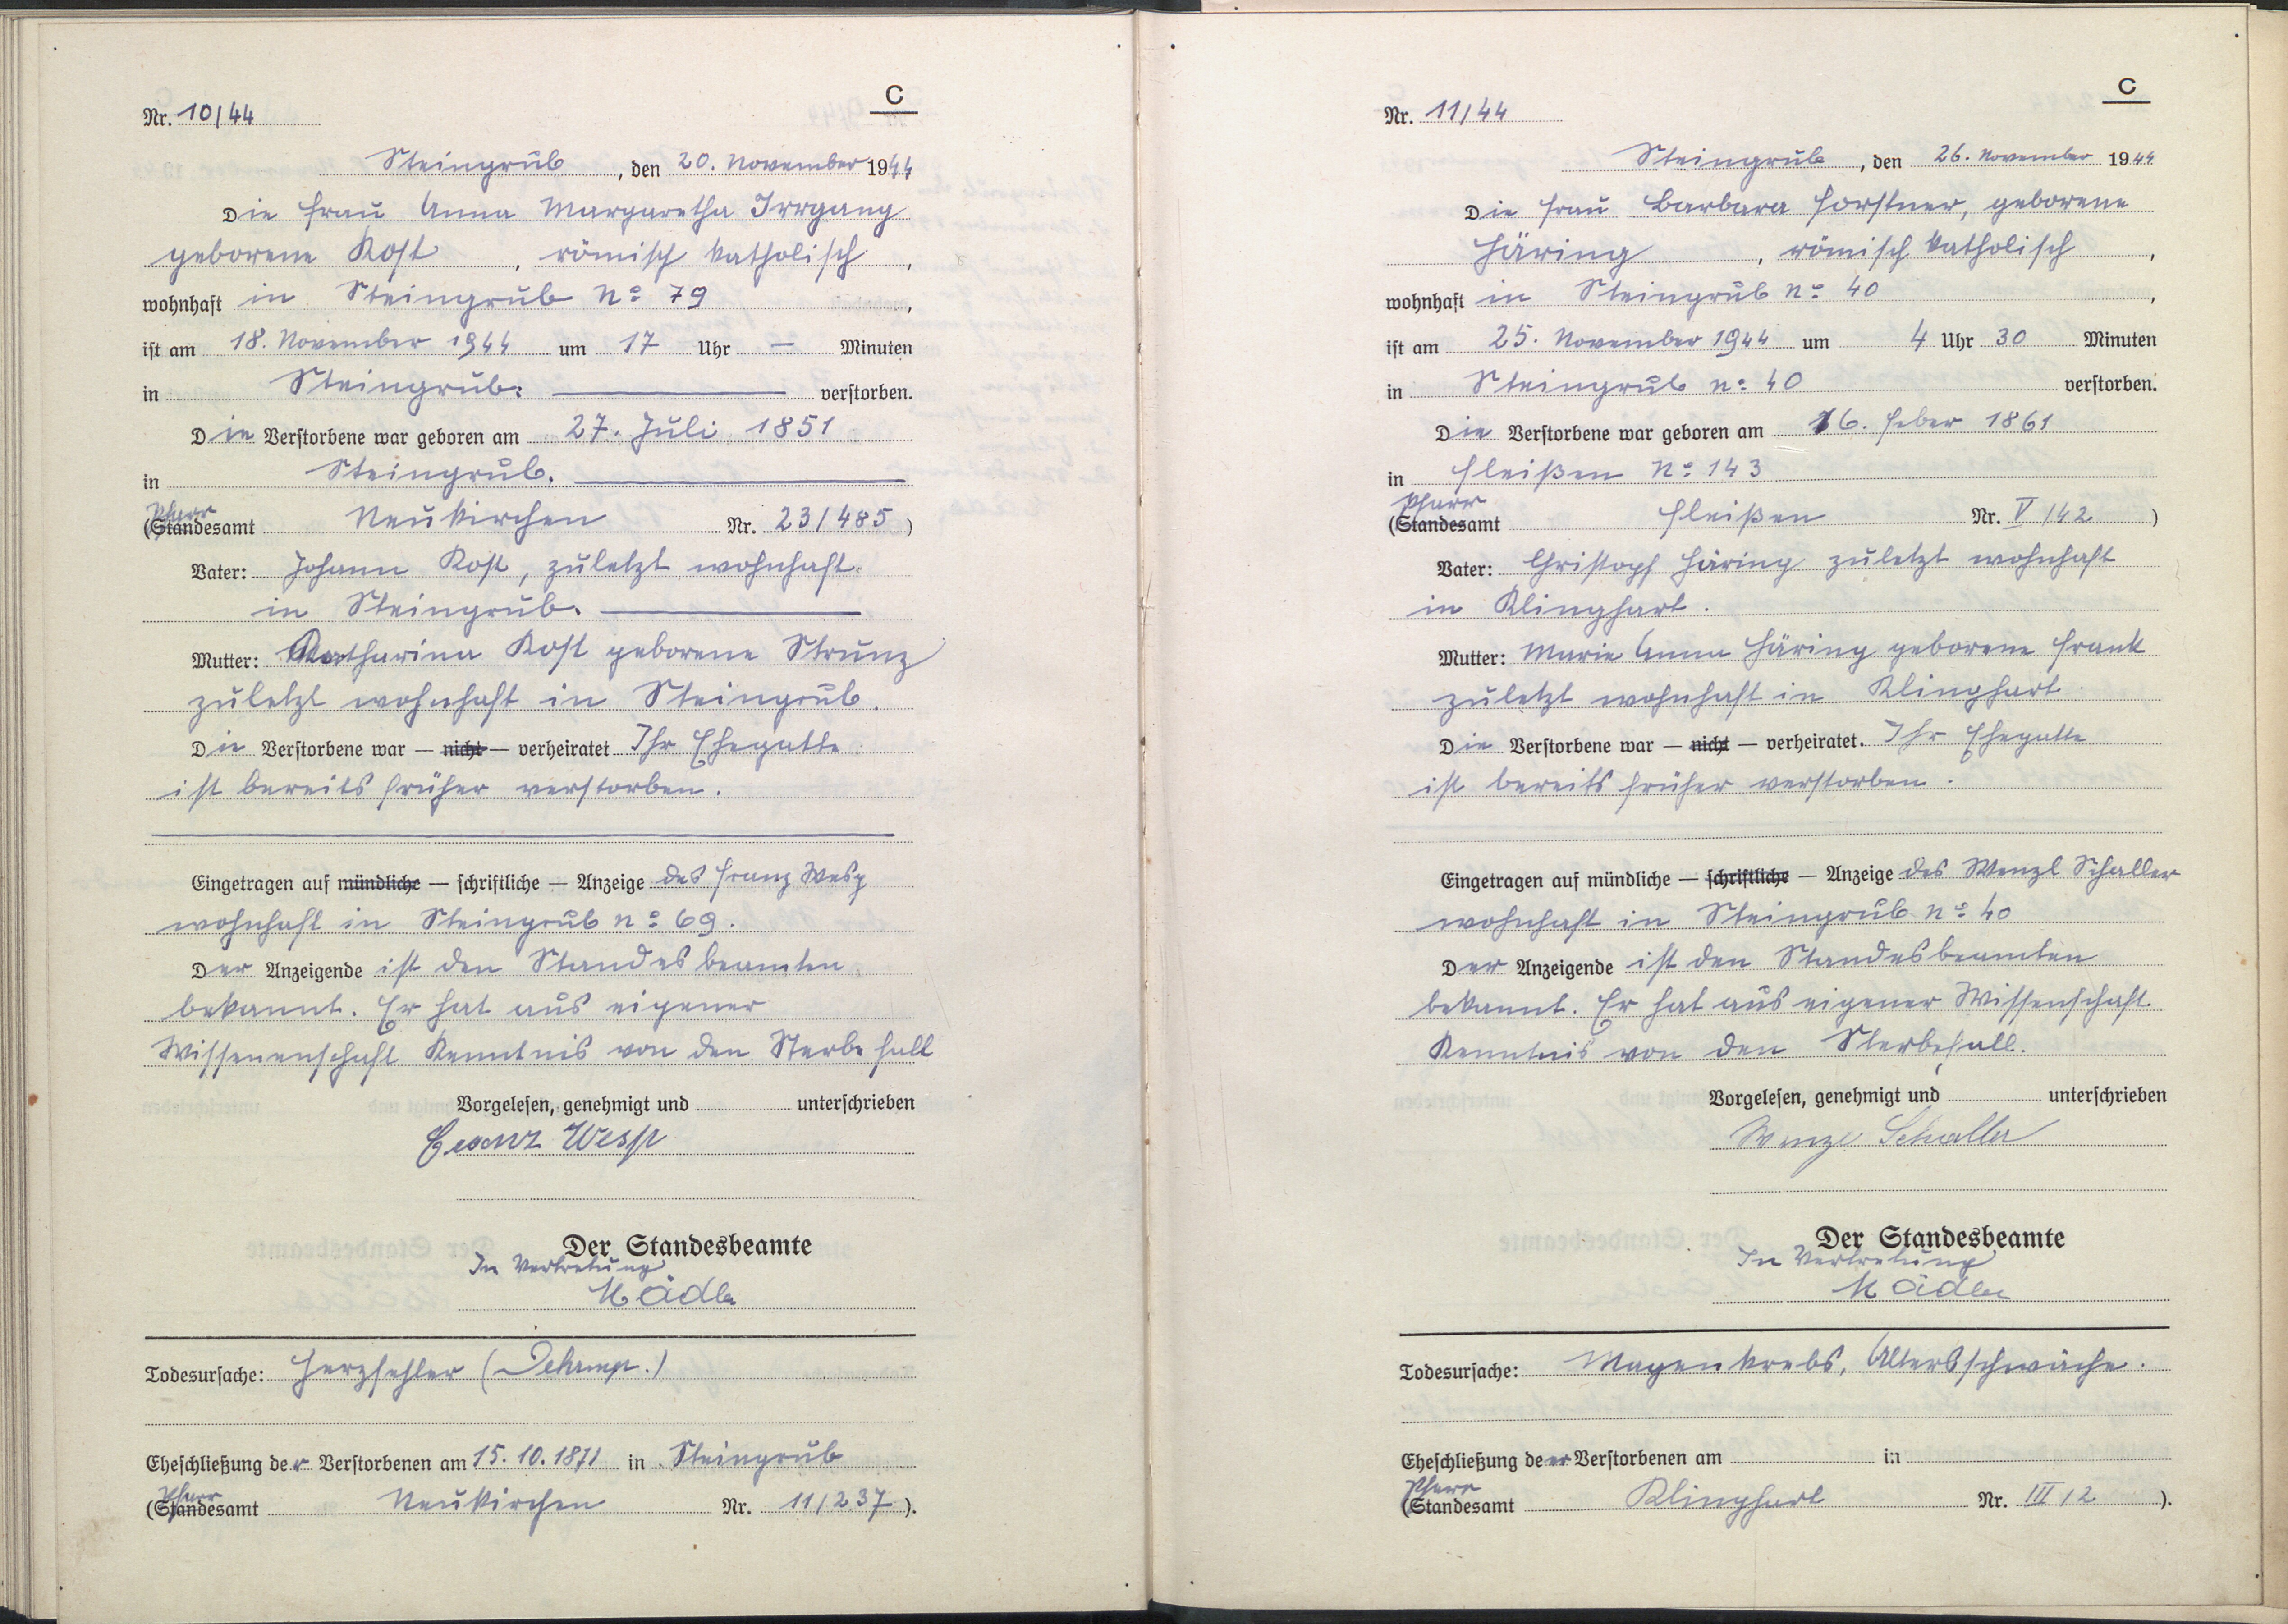 C
Nr. 10/44
Steingrub, den 20. November 1944
Die Frau Anna Margaretha Irrgang
geborene Kost, römisch katholisch,
wohnhaft in Steingrub No 79,
ist am 18. November 1944 um 17 Uhr — Minuten
in Steingrub. verstorben.
Die Verstorbene war geboren am 27. Juli 1851
in Steingrub.
Pfarr
(Standesamt Neukirchen Nr. 23/485)
Vater: Johann Kost, zuletzt wohnhaft
in Steingrub.
Mutter: Katharina Kost geborene Strunz
zuletzt wohnhaft in Steingrub.
Die Verstorbene war — nicht — verheiratet Ihr Ehegatte
ist bereits früher verstorben.
Eingetragen auf mündliche — schriftliche — Anzeige des Franz Wesp
wohnhaft in Steingrub no 69.
Der Anzeigende ist den Standesbeamten
bekannt. Er hat aus eigener
Wissenenschaft Kenntnis von den Sterbefall
Vorgelesen, genehmigt und unterschrieben
Franz Wesp
Der Standesbeamte
In Vertretung
Mädler
Todesursache: Herzfehler (Dekomp.)
Eheschließung der Verstorbenen am 15.10.1871 in Steingrub
Pfarr
(Standesamt Neukirchen Nr. 11/237).
C
Nr. 11/44
Steingrub, den 26. November 1944
Die Frau Barbara Forstner, geborene
Häring, römisch katholisch,
wohnhaft in Steingrub no 40,
ist am 25. November 1944 um 4 Uhr 30 Minuten
in Steingrub no 40 verstorben.
Die Verstorbene war geboren am 16. Feber 1861
in Fleißen No 143
Pfarr
(Standesamt Fleißen Nr. V/142)
Vater: Christoph Häring zuletzt wohnhaft
in Klinghart.
Mutter: Marie Anna Häring geborene Frank
zuletzt wohnhaft in Klinghart.
Die Verstorbene war — nicht — verheiratet. Ihr Ehegatte
ist bereits früher verstorben.
Eingetragen auf mündliche — schriftliche — Anzeige des Wenzl Schaller
wohnhaft in Steingrub no 40
Der Anzeigende ist den Standesbeamten
bekannt. Er hat aus eigener Wissenschaft
Kenntnis von den Sterbefall.
Vorgelesen, genehmigt und unterschrieben
Wenzl Schaller
Der Standesbeamte
In Vertretung
Mädler
Todesursache: Magenkrebs, Altersschwäche.
Eheschließung der Verstorbenen am in
Pfarr
(Standesamt Klinghart Nr. III/2).